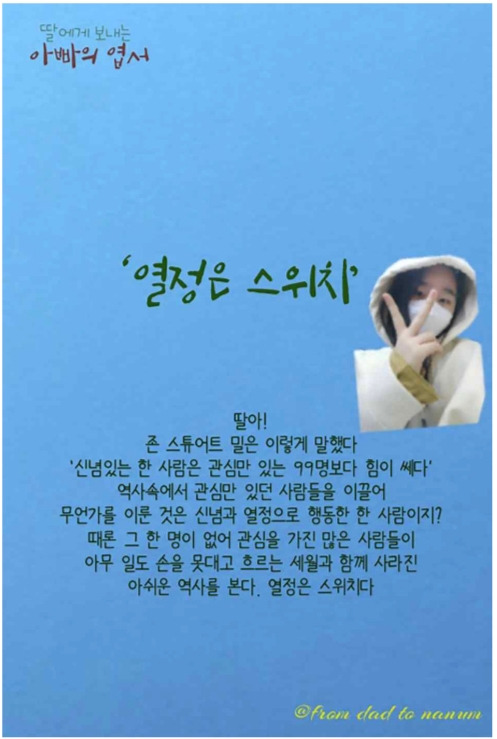 딸에게 보내는
아빠의 엽서
'열정은 스위치'
딸아!
존 스튜어트 밀은 이렇게 말했다
'신념있는 한 사람은 관심만 있는 99명보다 힘이 쎄다'
역사속에서 관심만 있던 사람들을 이끌어
무언가를 이룬 것은 신념과 열정으로 행동한 한 사람이지?
때론 그 한 명이 없어 관심을 가진 많은 사람들이
아무 일도 손을 못대고 흐르는 세월과 함께 사라진
아쉬운 역사를 본다. 열정은 스위치다
@from dad to nanum